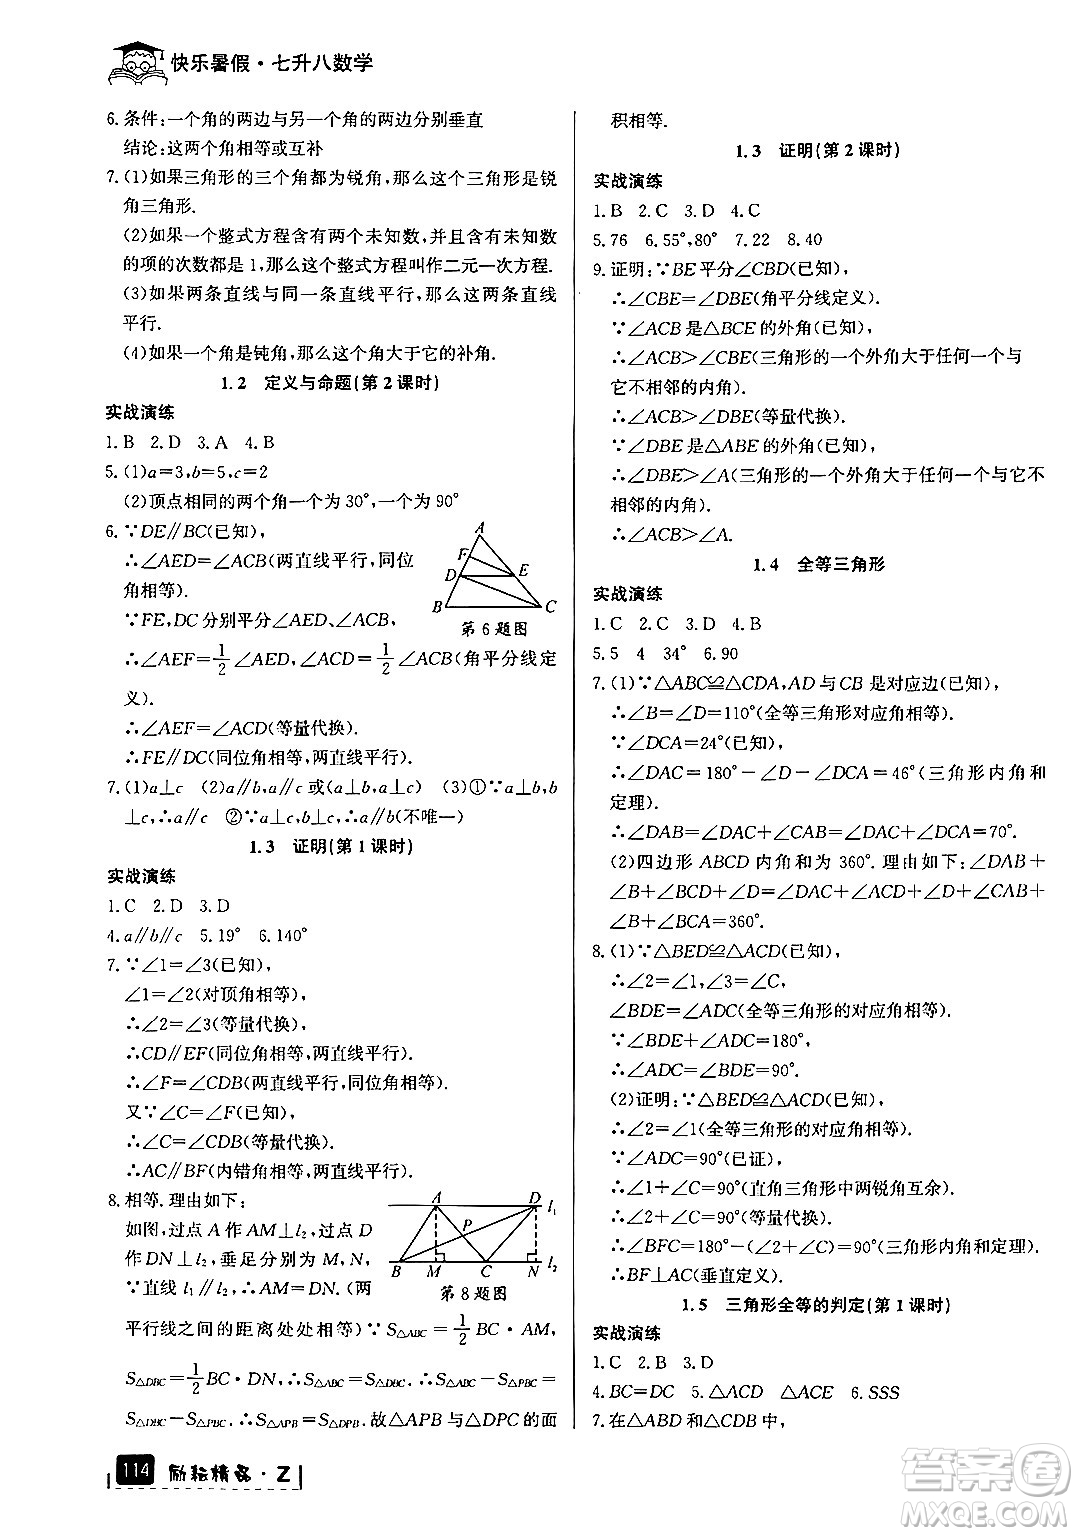 快乐暑假·七升八数学
6.条件:一个角的两边与另一个角的两边分别垂直
结论:这两个角相等或互补
7.(1)如果三角形的三个角都为锐角,那么这个三角形是锐
角三角形.
(2)如果一个整式方程含有两个未知数,并且未知数
的项的次数都是1,那么这个整式方程叫作二元一次方程.
(3)如果两条直线与同一条直线平行,那么这两条直线
平行.
(4)如果一个角是钝角,那么这个角大于它的补角.
1.2 定义与命题(第2课时)
实战演练
1.B 2.D 3.A 4.B
5.(1)a=3,b=5,c=2
(2)顶点相同的两个角一个为30°,一个为90°
6.∵DE∥BC(已知),
∴∠AED=∠ACB(两直线平行,同位
角相等).
∵FE,DC分别平分∠AED,∠ACB,
A
F
D
E
B
C
第6题图
∴∠AEF=1/2∠AED,∠ACD=1/2∠ACB(角平分线定
义).
∴∠AEF=∠ACD(等量代换).
∴FE∥DC(同位角相等,两直线平行).
7.(1)a⊥c (2)a∥b,a∥c或(a⊥b,a⊥c) (3)①∵a⊥b,
b⊥c,∴a∥c ②∵a⊥c,b⊥c,∴a∥b(不唯一)
1.3 证明(第1课时)
实战演练
1.C 2.D 3.D
4.a∥b∥c 5.19° 6.140°
7.∵∠1=∠3(已知),
∠1=∠2(对顶角相等),
∴∠2=∠3(等量代换).
∴CD∥EF(同位角相等,两直线平行).
∴∠F=∠CDB(两直线平行,同位角相等).
又∵∠C=∠F(已知),
∴∠C=∠CDB(等量代换).
∴AC∥BF(内错角相等,两直线平行).
8.相等.理由如下:
如图,过点A作AM⊥l₂,过点D
作DN⊥l₂,垂足分别为M,N.
∵直线l₁∥l₂,∴AM=DN.(两
A
D
l₁
P
B
M
C
N
l₂
第8题图
平行线之间的距离处处相等)∵S△ABC=1/2BC·AM,
S△DBC=1/2BC·DN,∴S△ABC=S△DBC.∴S△ABC-S△PBC=
S△DBC-S△PBC.∴S△APB=S△DPB.故△APB与△DPC的面
积相等.
1.3 证明(第2课时)
实战演练
1.B 2.C 3.D 4.C
5.76 6.55°,80° 7.22 8.40
9.证明:∵BE平分∠CBD(已知),
∴∠CBE=∠DBE(角平分线定义).
∵∠ACB是△BCE的外角(已知),
∴∠ACB>∠CBE(三角形的一个外角大于任何一个与
它不相邻的内角).
∴∠ACB>∠DBE(等量代换).
∵∠DBE是△ABE的外角(已知),
∴∠DBE>∠A(三角形的一个外角大于任何一个与它不
相邻的内角).
∴∠ACB>∠A.
1.4 全等三角形
实战演练
1.C 2.C 3.D 4.B
5.5 4 34° 6.90
7.(1)∵△ABC≌△CDA,AD与CB是对应边(已知),
∴∠B=∠D=110°(全等三角形对应角相等).
∵∠DCA=24°(已知),
∴∠DAC=180°-∠D-∠DCA=46°(三角形内角和
定理).
∴∠DAB=∠DAC+∠CAB=∠DAC+∠DCA=70°.
(2)四边形ABCD内角和为360°.理由如下:∠DAB+
∠B+∠BCD+∠D=∠DAC+∠ACD+∠D+∠CAB+
∠B+∠BCA=360°.
8.(1)∵△BED≌△ACD(已知),
∴∠2=∠1,∠3=∠C,
∠BDE=∠ADC(全等三角形的对应角相等).
∵∠BDE+∠ADC=180°,
∴∠ADC=90°.
(2)证明:∵△BED≌△ACD(已知),
∴∠2=∠1(全等三角形的对应角相等).
∵∠ADC=90°(已证),
∴∠1+∠C=90°(直角三角形中两锐角互余).
∴∠2+∠C=90°(等量代换).
∴∠BFC=180°-90°=90°(三角形内角和定理).
∴BF⊥AC(垂直定义).
1.5 三角形全等的判定(第1课时)
实战演练
1.C 2.B 3.D
4.BC=DC 5.△ACD △ACE 6.SSS
7.在△ABD和△CDB中,
114 励耘精品·Z
答案圈
MXQE.COM